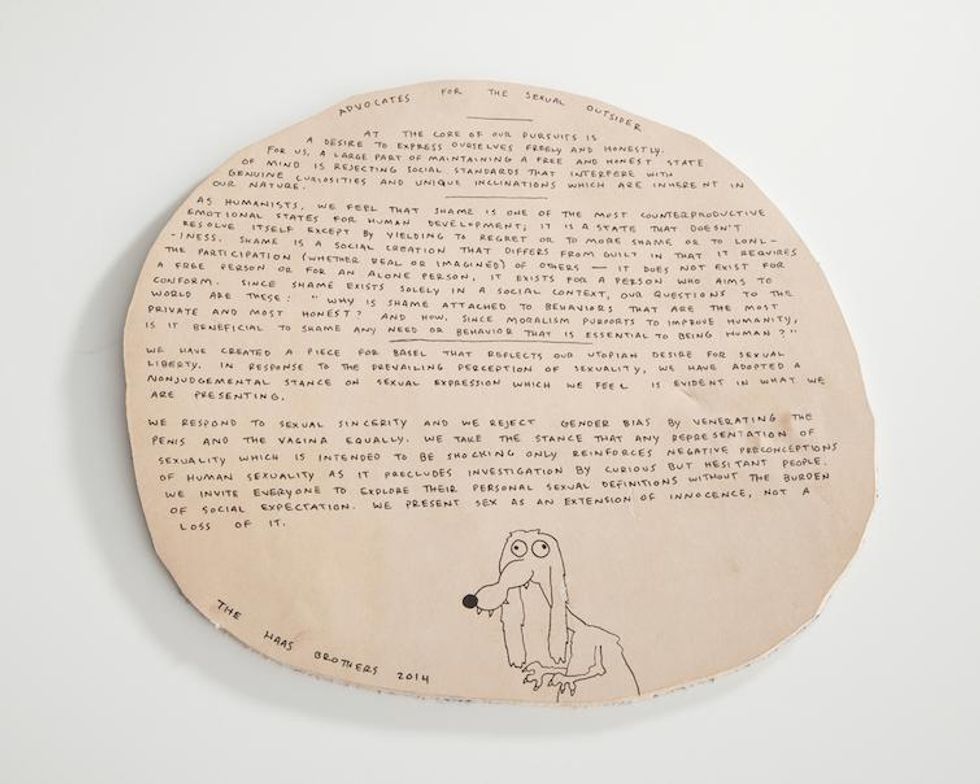 ADVOCATES FOR THE SEXUAL OUTSIDER
AT THE CORE OF OUR PURSUITS IS
A DESIRE TO EXPRESS OURSELVES FREELY AND HONESTLY.
FOR US, A LARGE PART OF MAINTAINING A FREE AND HONEST STATE
OF MIND IS REJECTING SOCIAL STANDARDS THAT INTERFERE WITH
GENUINE CURIOSITIES AND UNIQUE INCLINATIONS WHICH ARE INHERENT IN
OUR NATURE.
AS HUMANISTS, WE FEEL THAT SHAME IS ONE OF THE MOST COUNTERPRODUCTIVE
EMOTIONAL STATES FOR HUMAN DEVELOPMENT; IT IS A STATE THAT DOESN'T
RESOLVE ITSELF EXCEPT BY YIELDING TO REGRET OR TO MORE SHAME OR TO LONL-
-INESS. SHAME IS A SOCIAL CREATION THAT DIFFERS FROM GUILT IN THAT IT REQUIRES
THE PARTICIPATION (WHETHER REAL OR IMAGINED) OF OTHERS — IT DOES NOT EXIST FOR
A FREE PERSON OR FOR AN ALONE PERSON, IT EXISTS FOR A PERSON WHO AIMS TO
CONFORM. SINCE SHAME EXISTS SOLELY IN A SOCIAL CONTEXT, OUR QUESTIONS TO THE
WORLD ARE THESE: "WHY IS SHAME ATTACHED TO BEHAVIORS THAT ARE THE MOST
PRIVATE AND MOST HONEST? AND HOW, SINCE MORALISM PURPORTS TO IMPROVE HUMANITY,
IS IT BENEFICIAL TO SHAME ANY NEED OR BEHAVIOR THAT IS ESSENTIAL TO BEING HUMAN?"
WE HAVE CREATED A PIECE FOR BASEL THAT REFLECTS OUR UTOPIAN DESIRE FOR SEXUAL
LIBERTY. IN RESPONSE TO THE PREVAILING PERCEPTION OF SEXUALITY, WE HAVE ADOPTED A
NONJUDGEMENTAL STANCE ON SEXUAL EXPRESSION WHICH WE FEEL IS EVIDENT IN WHAT WE
ARE PRESENTING.
WE RESPOND TO SEXUAL SINCERITY AND WE REJECT GENDER BIAS BY VENERATING THE
PENIS AND THE VAGINA EQUALLY. WE TAKE THE STANCE THAT ANY REPRESENTATION OF
SEXUALITY WHICH IS INTENDED TO BE SHOCKING ONLY REINFORCES NEGATIVE PRECONCEPTIONS
OF HUMAN SEXUALITY AS IT PRECLUDES INVESTIGATION BY CURIOUS BUT HESITANT PEOPLE.
WE INVITE EVERYONE TO EXPLORE THEIR PERSONAL SEXUAL DEFINITIONS WITHOUT THE BURDEN
OF SOCIAL EXPECTATION. WE PRESENT SEX AS AN EXTENSION OF INNOCENCE, NOT A
LOSS OF IT.
THE HAAS BROTHERS 2014